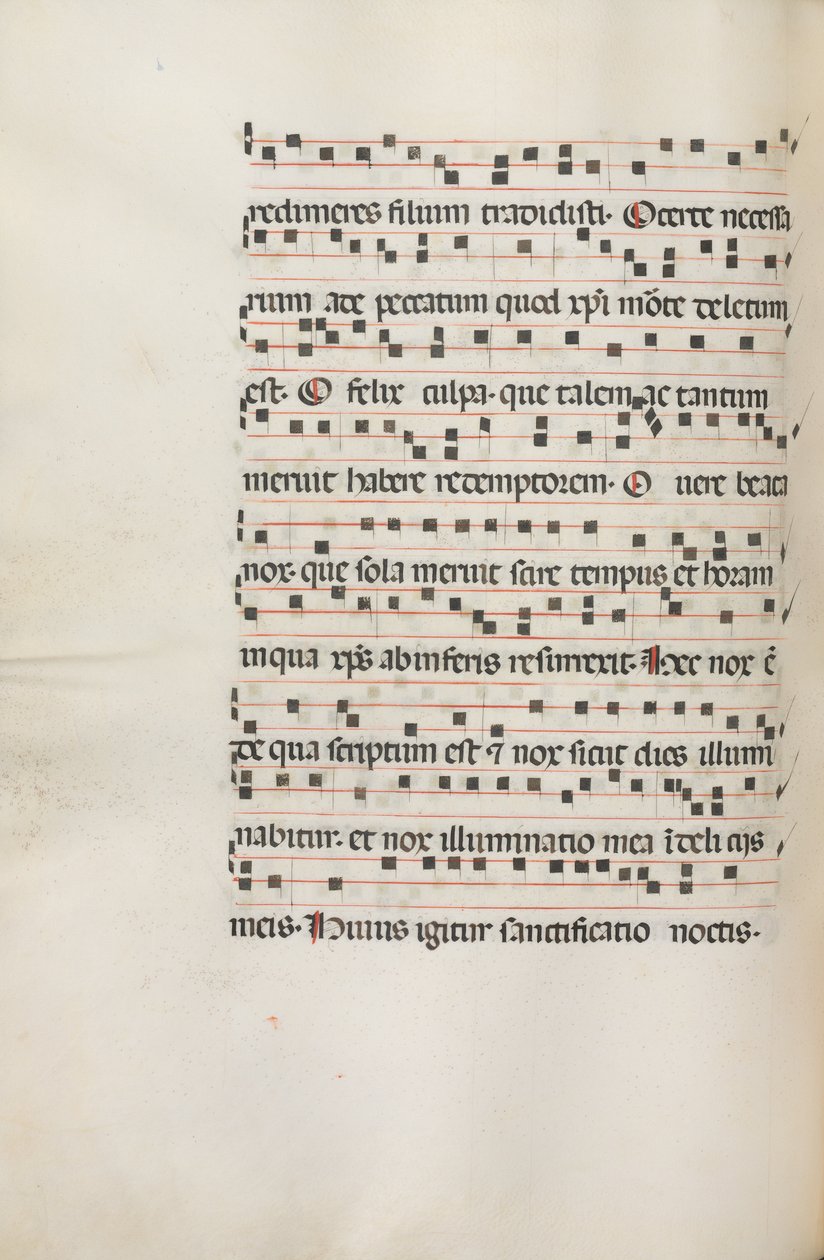 redimeres filium tradidisti. O certe necessa
rium ade peccatum quod xp̄i mōte deletum
est. O felix culpa. que talem ac tantum
meruit habere redemptorem. O uere beata
nox. que sola meruit scire tempus et horam
in qua xp̄s ab inferis resurrexit. Hec nox ē
de qua scriptum est ⁊ nox sicut dies illumi
nabitur. et nox illuminatio mea ī delicijs
meis. Huius igitur sanctificatio noctis.